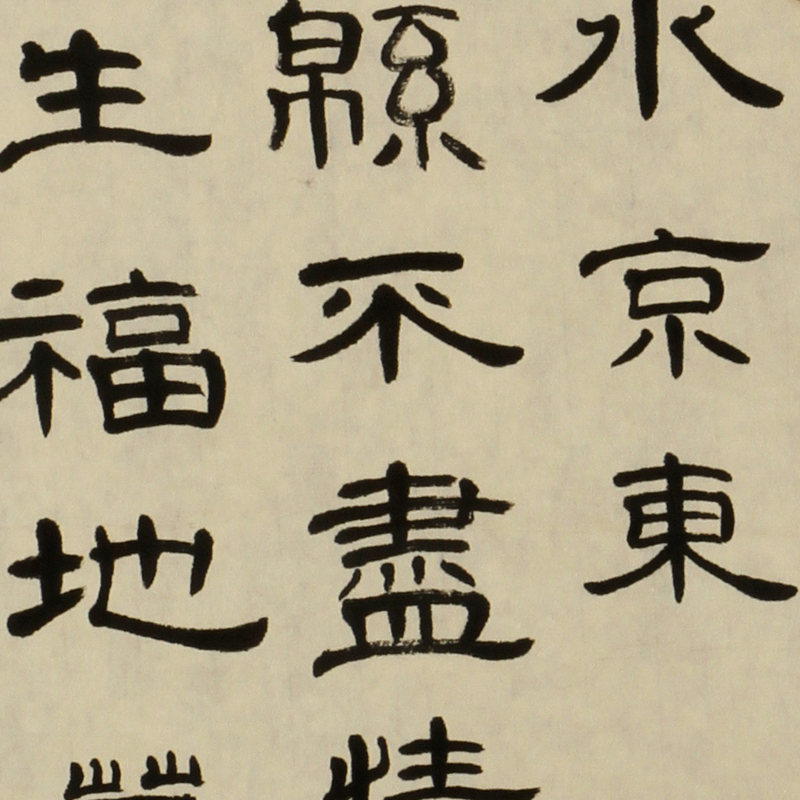 水京東
緜不盡情
生福地